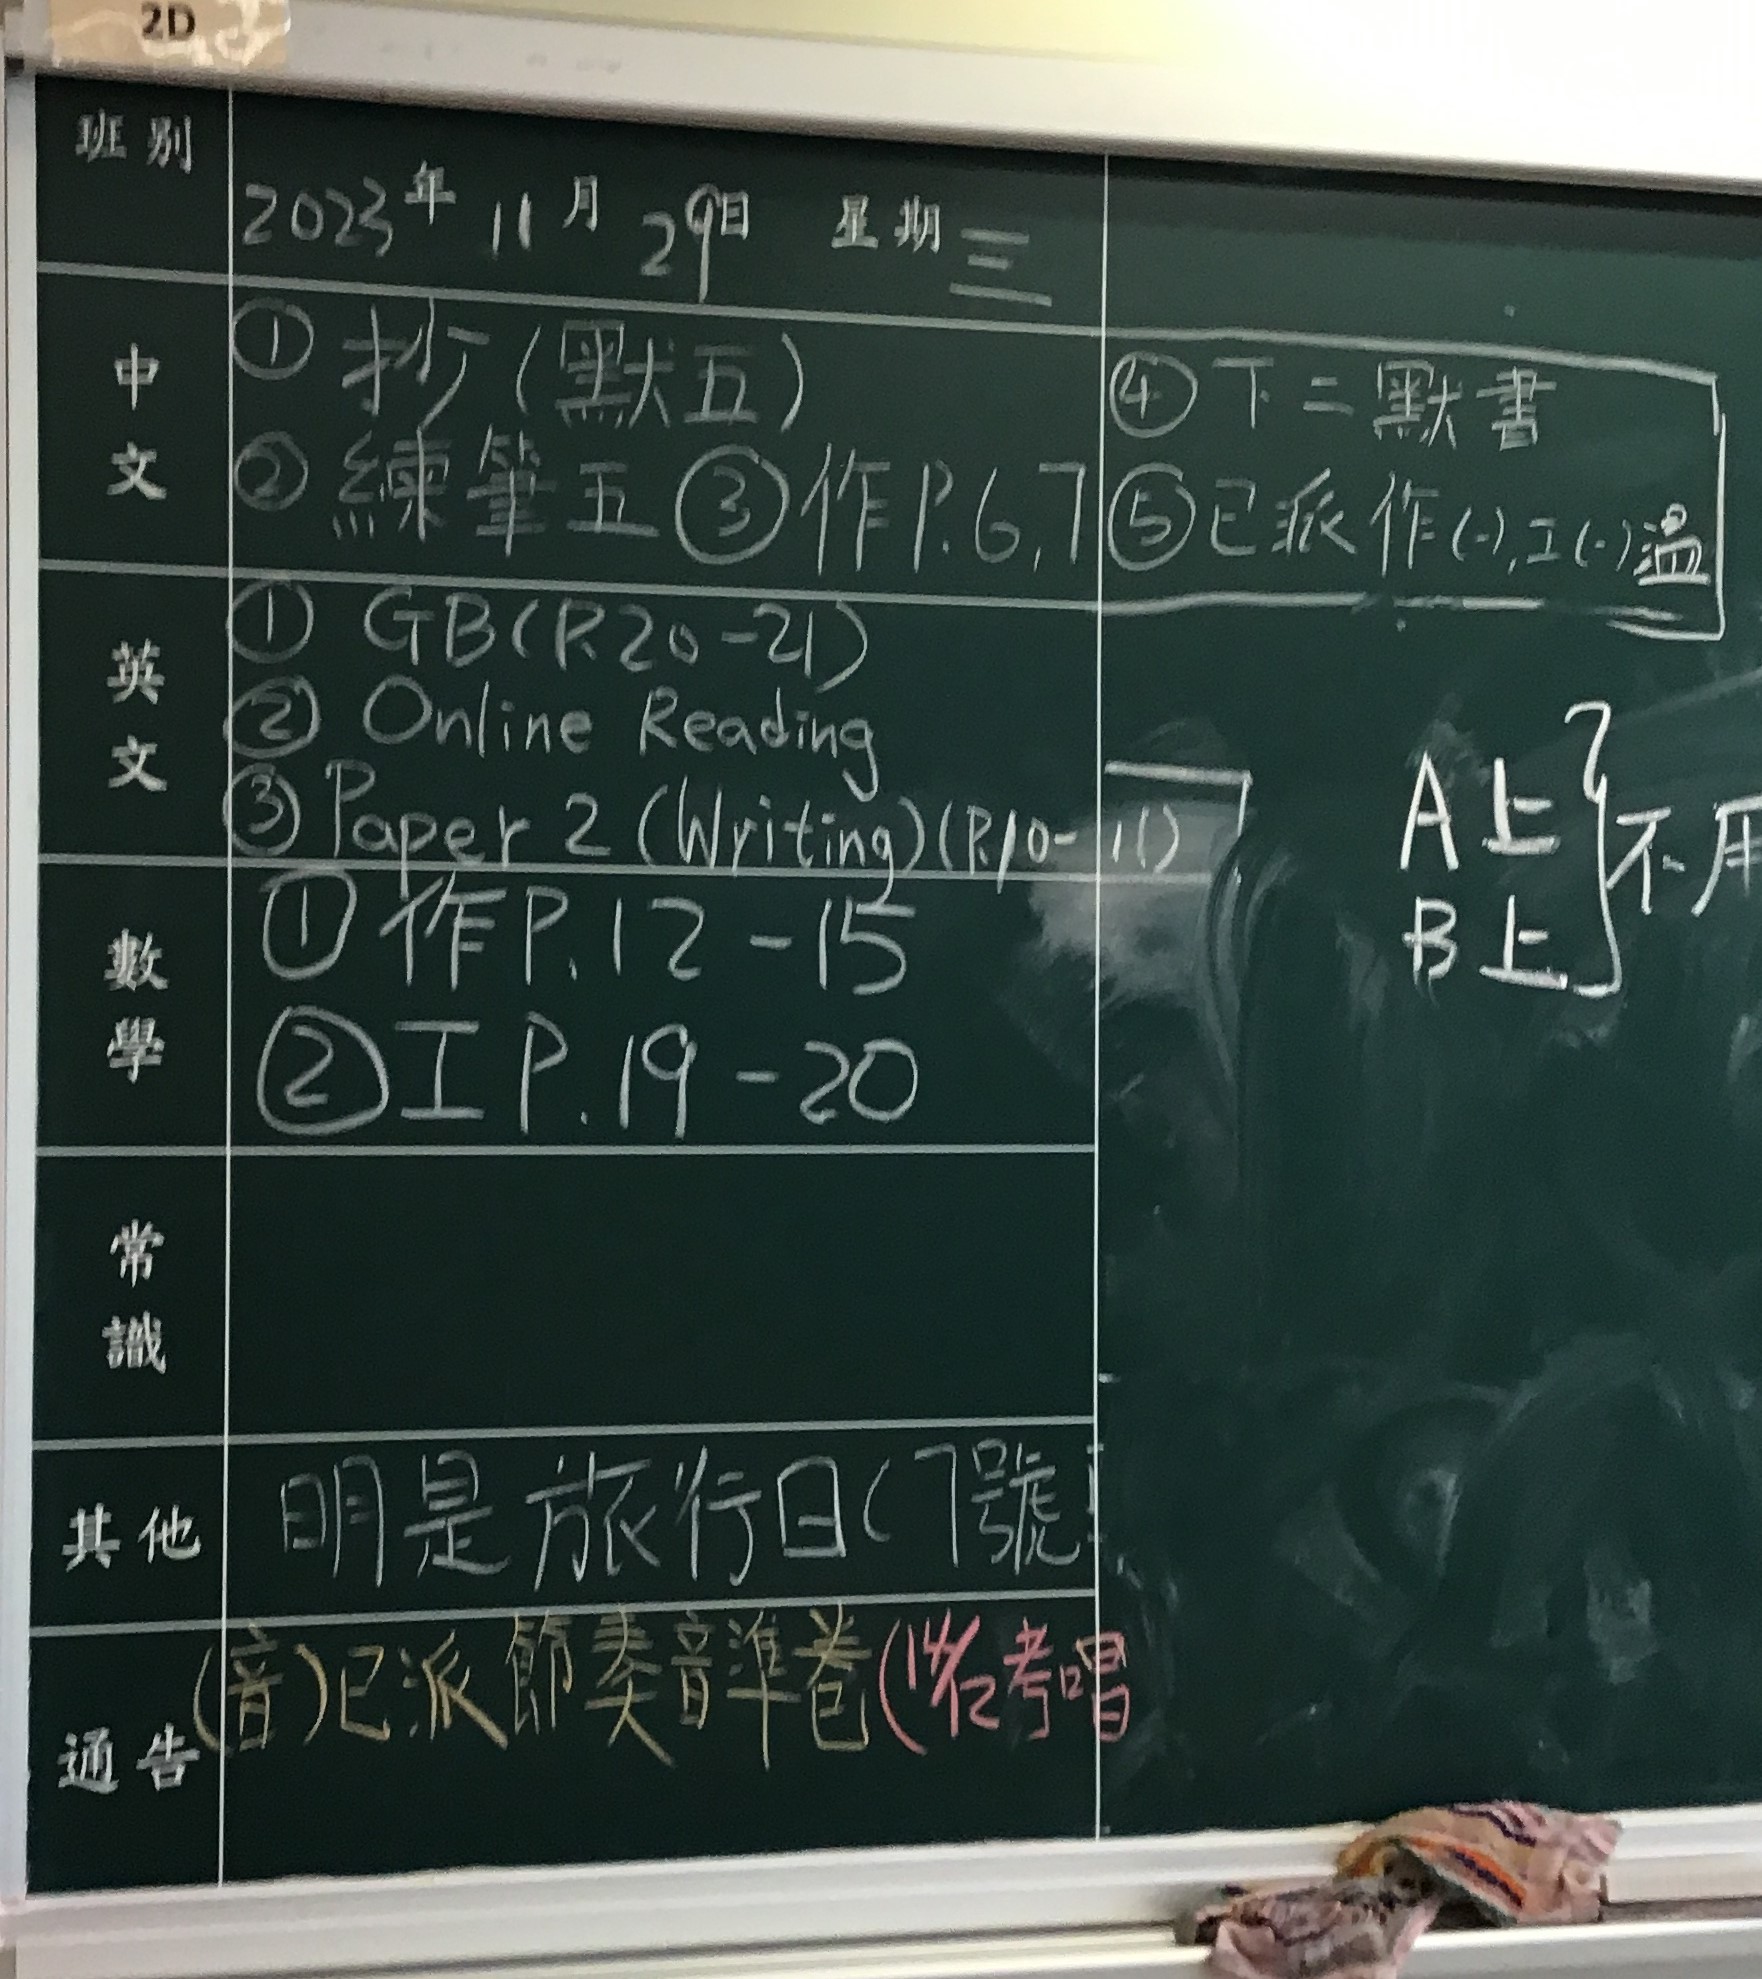 2D
班別
2023年 11月 29日 星期三
中文
① 抄(默五)
② 練筆五 ③ 作P.6,7
④ 下二默書
⑤ 已派作(一),工(一)溫
英文
① GB(P.20-21)
② Online Reading
③ Paper 2 (Writing)(P.10-11)
A上
B上
不用
數學
① 作P.12-15
② 工P.19-20
常識
其他
明是旅行日(7號
通告
(音)已派節奏音準卷(14/12考唱